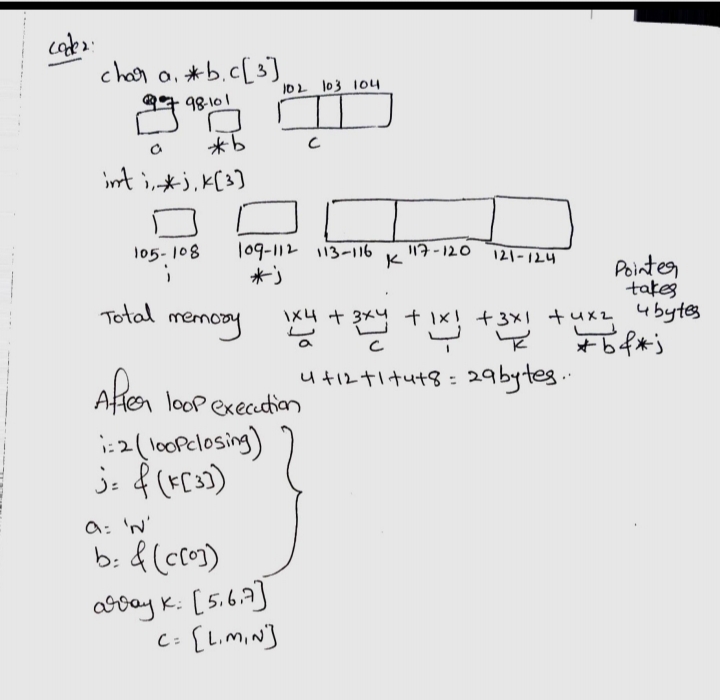 code 2:
char a, *b, c[3]
97 98-101 102 103 104
a *b c
int i, *j, k[3]
105-108 109-112 113-116 117-120 121-124
i *j K
Pointer
takes
4 bytes
Total memory 1x4 + 3x4 + 1x1 + 3x1 + 4x2
a c i K *b & *j
4+12+1+4+8 = 29 bytes..
After loop execution
i=2 (loop closing)
j= &(K[3])
a= 'N'
b= &(c[0])
array K= [5,6,7]
c= [L,M,N]